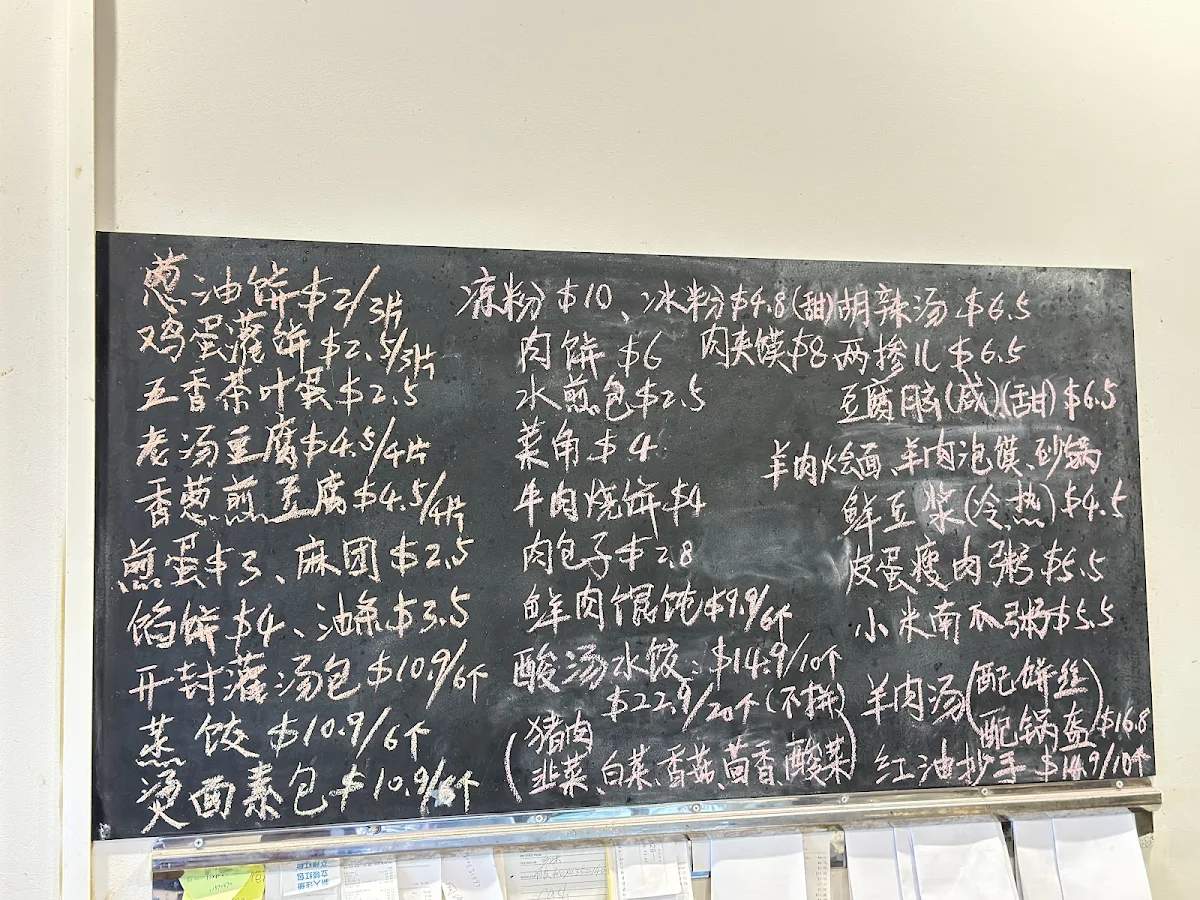 葱油饼$2/3片
鸡蛋灌饼$2.5/3片
五香茶叶蛋$2.5
老汤豆腐$4.5/4片
香葱煎豆腐$4.5/4片
煎蛋$3、麻团$2.5
馅饼$4、油条$3.5
开封灌汤包$10.9/6个
蒸饺$10.9/6个
烫面素包$10.9/6个
凉粉$10、冰粉$4.8(甜)
肉饼$6 肉夹馍$8
水煎包$2.5
菜角$4
牛肉烧饼$4
肉包子$2.8
鲜肉馄饨$9.9/6个
酸汤水饺:$14.9/10个
$22.9/20个(不拼)
(猪肉
韭菜、白菜、香菇、茴香、酸菜)
胡辣汤$6.5
两掺儿$6.5
豆腐脑(咸)(甜)$6.5
羊肉烩面、羊肉泡馍、砂锅
鲜豆浆(冷热)$4.5
皮蛋瘦肉粥$5.5
小米南瓜粥$5.5
羊肉汤(配饼丝
配锅盔)$16.8
红油抄手$14.9/10个
立领红包
新人注册